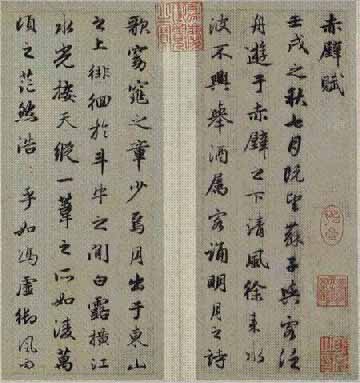 赤壁賦
壬戌之秋七月既望蘇子與客泛
舟遊于赤壁之下清風徐來水
波不興舉酒属客誦明月之詩
歌窈窕之章少焉月出于東山
之上徘徊於斗牛之間白露橫江
水光接天縱一葦之所如淩萬
頃之茫然浩乎如馮虛御風而